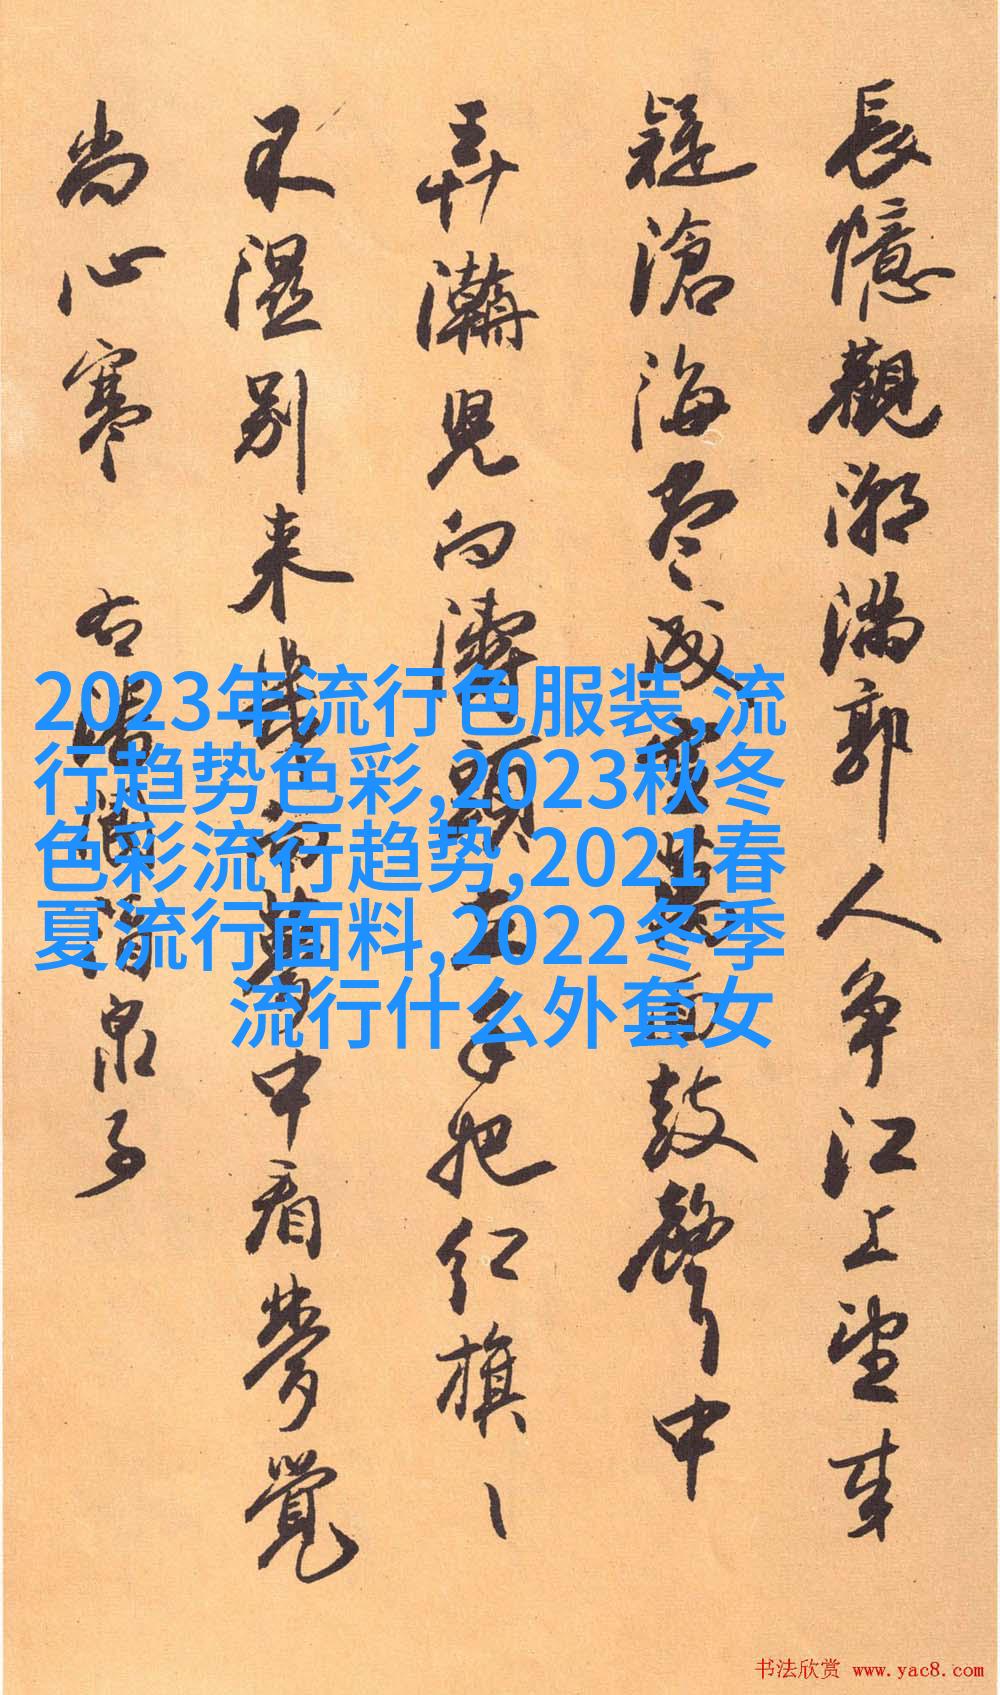 長憶觀潮滿郭人爭江上望来
疑滄海盡成空萬面鼓聲中
弄兒向濤頭立手把紅旗、
不濕別来幾向夢中看夢覺
尚心寒 右潘閬酒泉子
2023年流行色服装,流
行趋势色彩,2023秋冬
色彩流行趋势,2021春
夏流行面料,2022冬季
流行什么外套女
书法欣赏 www.yac8.com